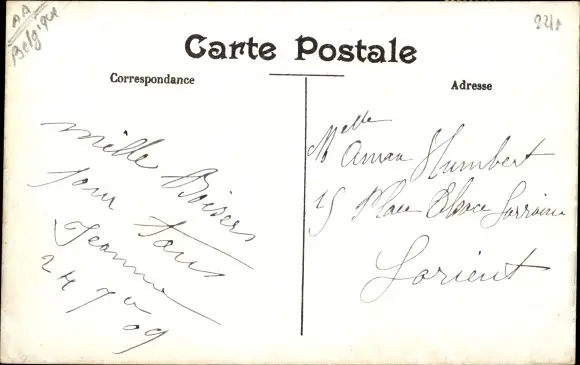 AA
Belgique
Carte Postale
Correspondance
Adresse
Mille Baisers
pour Tous
Jeanne
24 7 09
Melle Humbert
15 Place Alsace Lorraine
Lorient